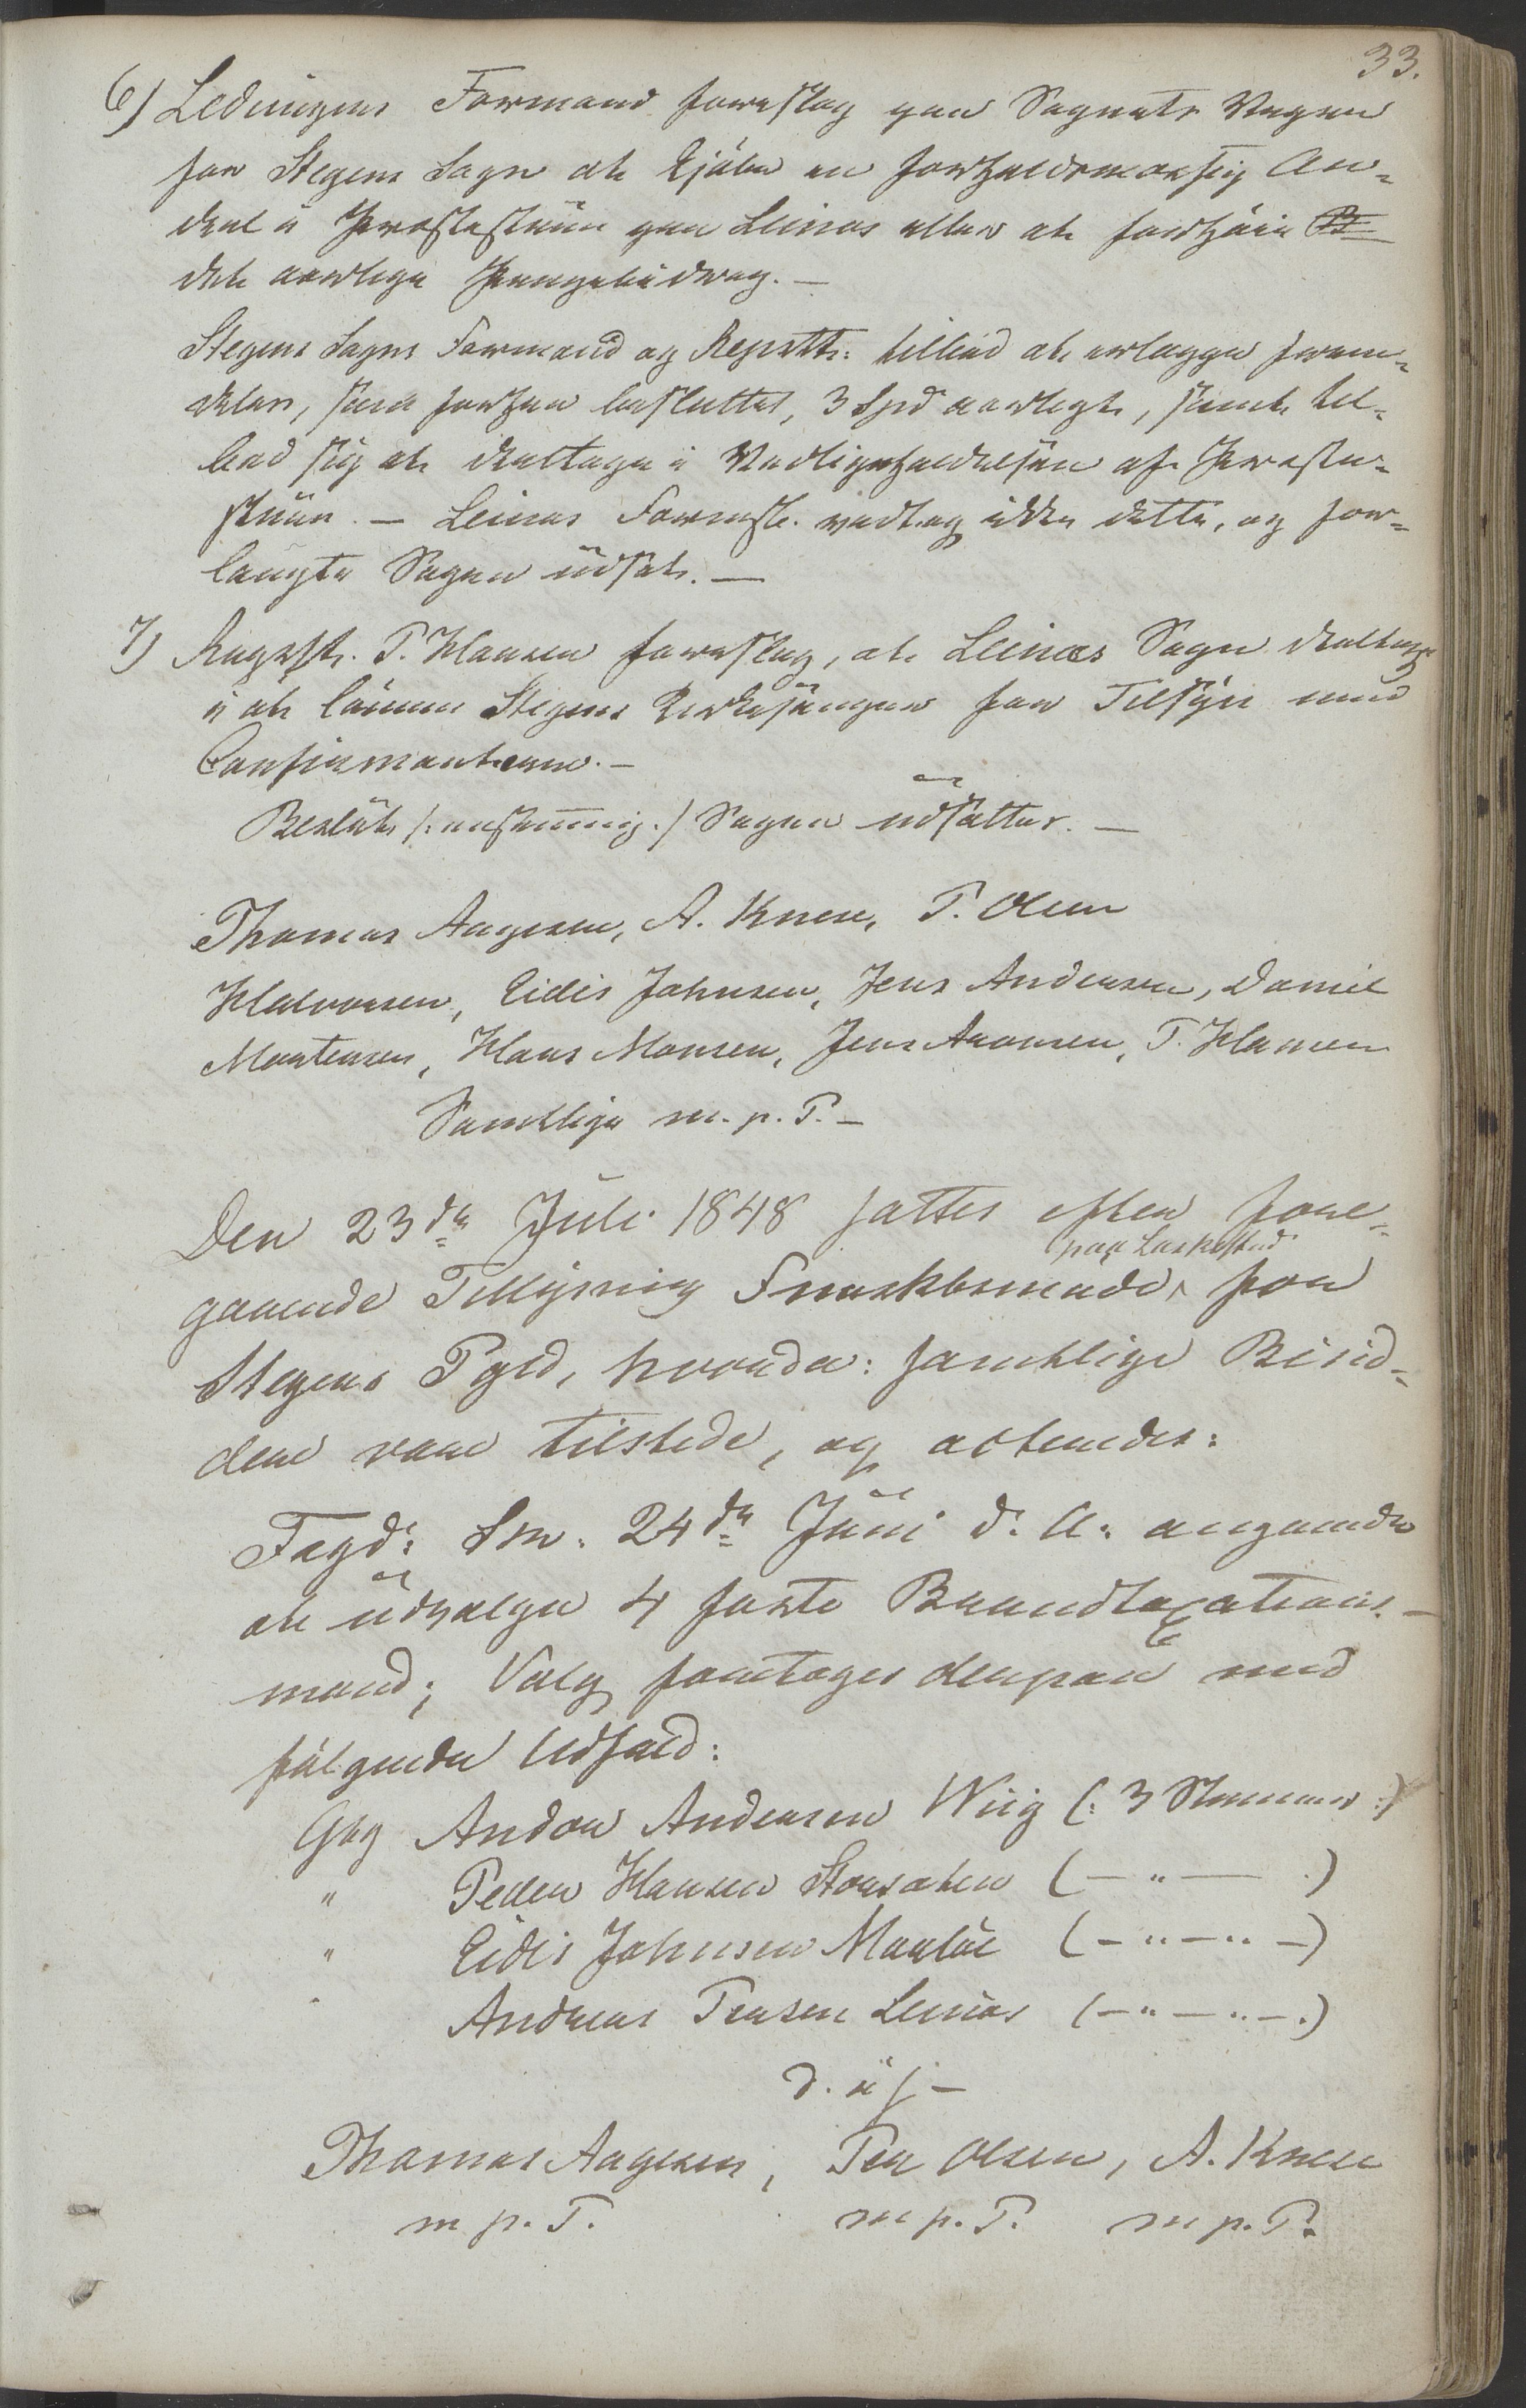 33.
6) Ledingens Formand foreslog paa Sagnets Vegne
for Stegens Sogn at kjøbe en forholdsmæssig An-
deel i Præstestuen paa Leines eller at forhøie
det aarlige Pengebidrag. —
Stegens Sogns Formand og Repræstr: tilbød at erlægge frem-
deles, som forhen besluttet, 3 Spd aarligt, samt til-
bød sig at deeltage i Vedligeholdelsen af Præste-
stuen. — Leines Formsk. vedtog ikke dette, og for-
langte Sagen udsat. —
7) P. Hansen foreslog, at Leines Sogn deeltage
i at lønne Stegens Kirkesanger for Tilsyn med
Confirmanterne. —
Beslut: /: enstemmig :/ Sagen udsættes. —
Thomas Aagesen, A. Knese, P. Olsen
Halvorsen, Eidis Johnsen, Jens Andersen, Daniel
Mortensen, Hans Monsen, Jens Aronsen, P. Hansen
Samtlige m. p. P. —
Den 23de Juli 1848 sattes efter fore-
paa Laskestad
gaaende Tillysning Formskbsmøde for
Stegens Pgld, hvorda: samtlige Besid-
dere vare tilstede, og ageredes:
Fogd: Skr. 24de Juni d: A: angaaende
at udvælge 4 faste Brandtaxations-
mænd; Valg foretoges derpaa med
følgende Udfald:
Gbg Andor Andersen Wiig (: 3 Stemmer :)
" Peder Hansen Storsæter (— " — .)
" Eidis Johnsen Maaløe (— " — " —)
" Andreas Jensen Leines (— " — " — .)
Thomas Aagesen, Peer Olsen, A. Knese
m p. P. m p. P. m p. P.